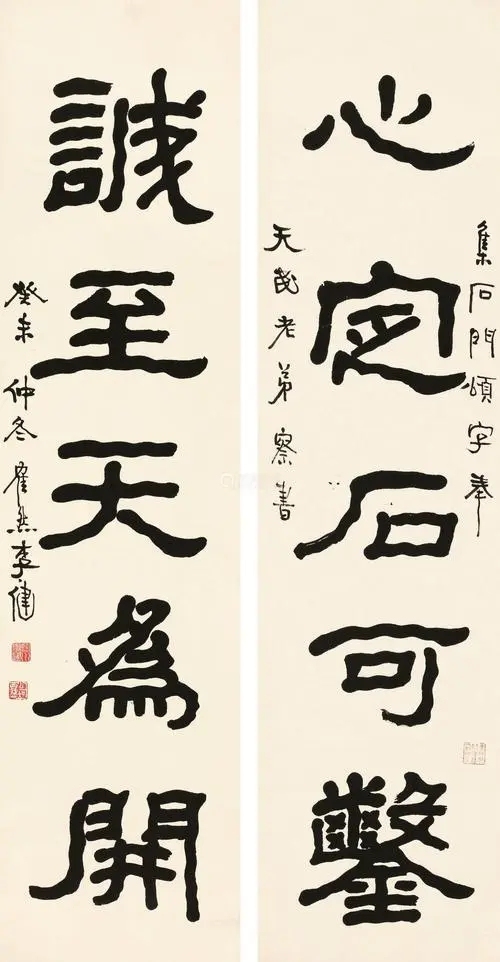 心定石可鑿
集石門頌字奉
天老弟察書
誠至天爲開
癸未仲冬隺然李健